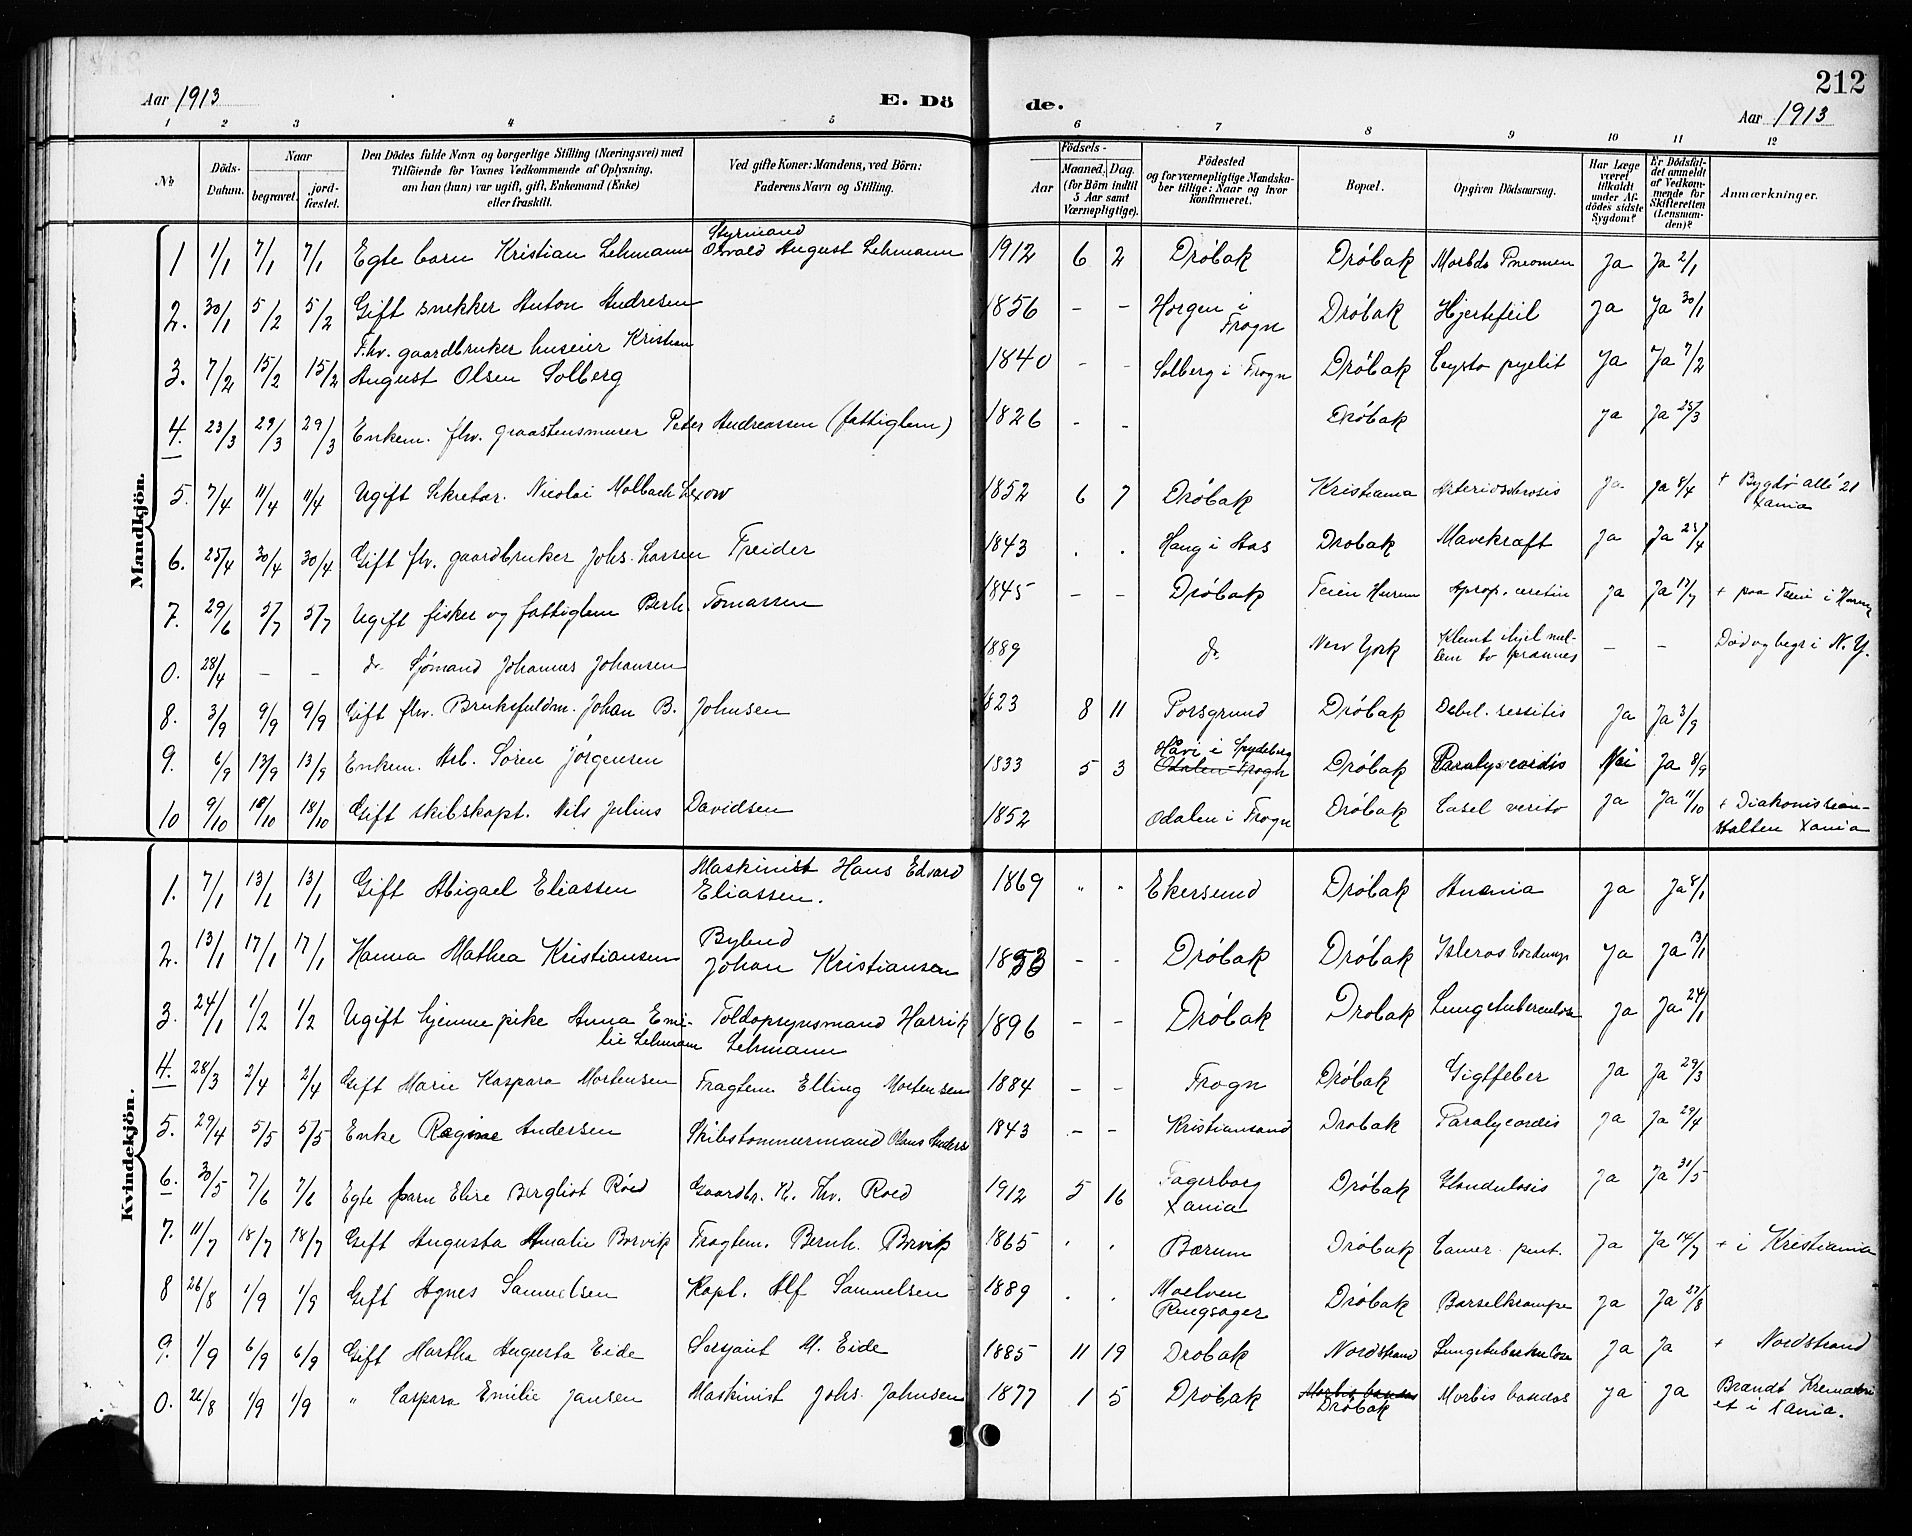 212
Aar 1913 E. Dö de. Aar 1913
1 2 3 4 5 6 7 8 9 10 11 12
No Döds-Datum. Naar begravet. jord-fæstet. Den Dödes fulde Navn og borgerlige Stilling (Næringsvei) med Tilföiende for Voxnes Vedkommende af Oplysning, om han (hun) var ugift, gift, Enkemand (Enke) eller fraskilt. Ved gifte Koner: Mandens, ved Börn: Faderens Navn og Stilling. Födsels- Aar Maaned. Dag. (for Börn indtil 5 Aar samt Værnepligtige). Födested og for værnepligtige Mandska-ber tillige: Naar og hvor konfirmeret. Bopæl. Opgiven Dödsaarsag. Har Læge været tilkaldt under Af-dödes sidste Sygdom? Er Dödsfal-det anmeldt af Vedkom-mende for Skifteretten (Lensman-den)? Anmærkninger.
Mandkjön.
1 1/1 7/1 7/1 Egte barn Kristian Lehmann Styrmand Osvald August Lehmann 1912 6 2 Dröbak Dröbak Morbds Pneomen Ja Ja 2/1
2. 30/1 5/2 5/2 Gift snekker Anton Andresen 1856 - - Horgen i Frogn Dröbak Hjertefeil Ja Ja 30/1
3. 7/2 15/2 15/2 Fhv. gaardbruker huseier Kristian August Olsen Solberg 1840 - - Solberg i Frogn Dröbak Cysto pyelit Ja Ja 7/2
4. 23/3 29/3 29/3 Enkem. fhv. graastensmurer Peter Andreassen (fattiglem) 1826 - - Dröbak Ja Ja 25/3
5. 7/4 11/4 11/4 Ugift Sekretær. Nicolai Molbach Lexow 1852 6 7 Dröbak Kristiania Arteriosclerosis Ja Ja 8/4 + Bygdö allé 21 Xania
6. 25/4 30/4 30/4 Gift fhv. gaardbruker Johs. Larsen Treider 1843 . . Haug i Aas Drobak Mavekræft Ja Ja 25/4
7. 29/6 5/7 5/7 Ugift fisker og fattiglem Berh. Tomassen 1845 - - Dröbak Teien Hurum Ja Ja + paa Teien i Hurum
0. 28/4 - - do Sjømand Johannes Johansen 1889 do New York Klemt ihjel mel-lem to - - Død og begr i N. Y.
8. 3/9 9/9 9/9 Gift fhv. Bruksfuldm. Johan B. Johnsen 1823 8 11 Porsgrund Dröbak Debil. Ja Ja 3/9
9. 6/9 13/9 13/9 Enkem. Arb. Sören Jörgensen 1833 5 3 i Spydeberg Odalen Frogn Dröbak Paralys cordis Nei Ja 8/9
10 9/10 18/10 18/10 Gift skibskapt. Nils Julius Davidsen 1852 Odalen i Frogn Dröbak Ja Ja 11/10 + Diakonissean-stalten Xania
Kvindekjön.
1. 7/1 13/1 13/1 Gift Abigael Eliassen Maskinist Hans Edvard Eliassen. 1869 " " Ekersund Dröbak Anæmia Ja Ja 8/1
2. 13/1 17/1 17/1 Hanna Mathea Kristiansen Bybud Johan Kristiansen 1853 - - Dröbak Dröbak Ja Ja 13/1
3. 24/1 1/2 1/2 Ugift hjemme pike Anna Emi-lie Lehmann Toldopsynsmand Harrik Lehmann 1896 - - Dröbak Drobak Lungetuberculose Ja Ja 24/1
4. 28/3 2/4 2/4 Gift Marie Kaspara Mortensen Fragtem Elling Mortensen 1884 - - Frogn Dröbak Gigtfeber Ja Ja 29/3
5. 29/4 5/5 5/5 Enke Regine Andersen Skibstømmermand Olaus Anderse 1843 - - Kristiansand Drobak Paralycordis Ja Ja 29/4
6. 30/5 7/6 7/6 Egte barn Elise Bergliot Röed Gaardbr. K. Thv. Roed 1912 5 16 Fagerborg Xania Dröbak Ja Ja 31/5
7. 11/7 18/7 18/7 Gift Augusta Amalie Borvik Fragtem. Bernh. Borvik 1865 . . Bærum Dröbak Ja Ja 14/7 + i Kristiania
8 26/8 1/9 1/9 Gift Agnes Samuelsen Kapt. Alf Samuelsen 1889 . . Moelven Ringsager Dröbak Barselkrampe Ja Ja 27/8
9. 1/9 6/9 6/9 Gift Martha Augusta Eide Sersjant M. Eide 1885 11 19 Drobak Nordstrand Lungetuberkulose Ja Ja + Nordstrand
0. 26/8 1/9 1/9 " Caspara Emilie Jansen Maskinist Johs. Jahnsen 1877 1 5 Dröbak Dröbak Morbis basedos Ja Ja Brændt Krematori et i Xania.